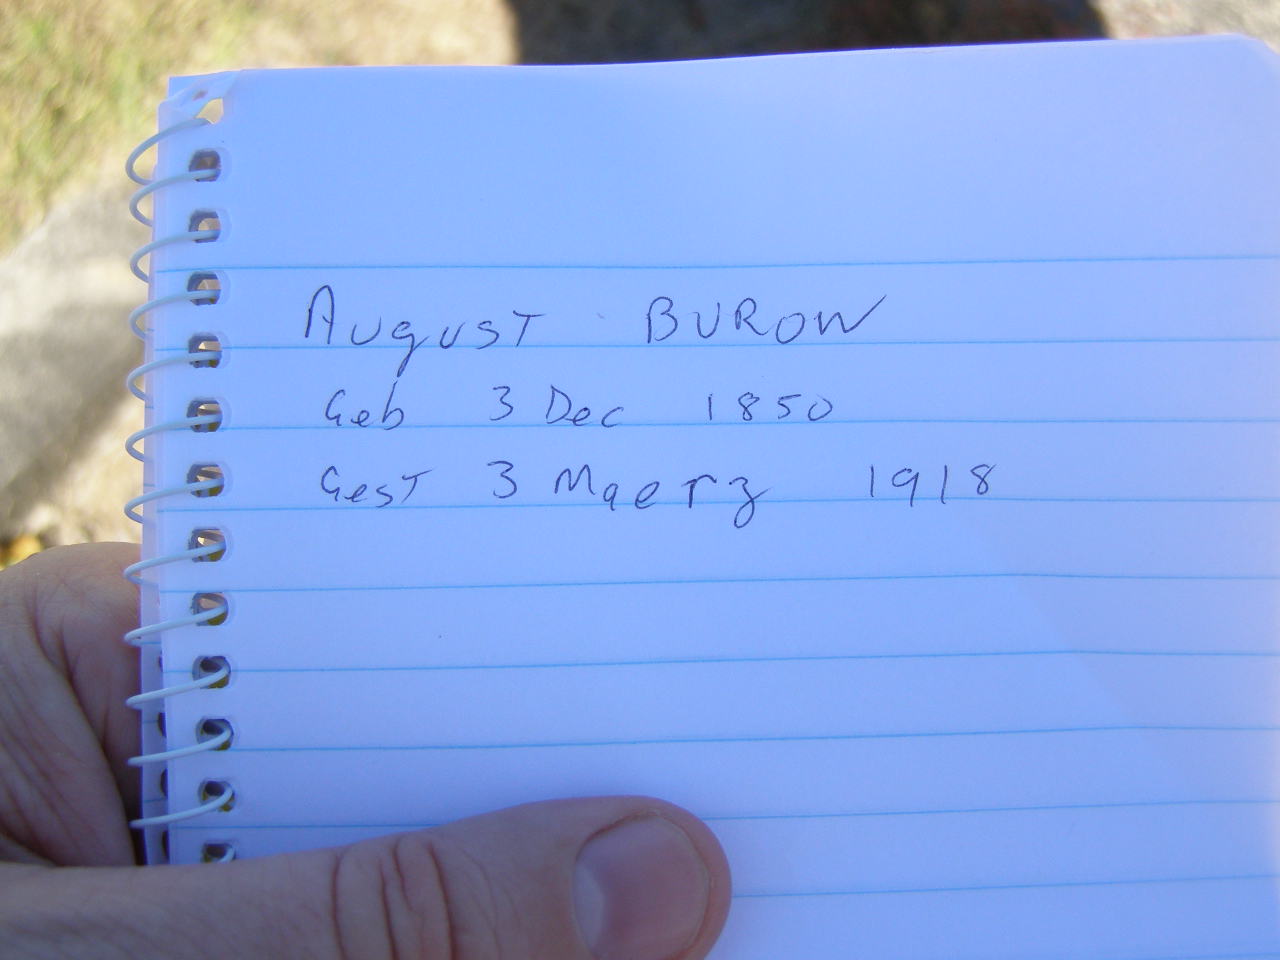 August BUROW
Geb 3 Dec 1850
Gest 3 Maerz 1918